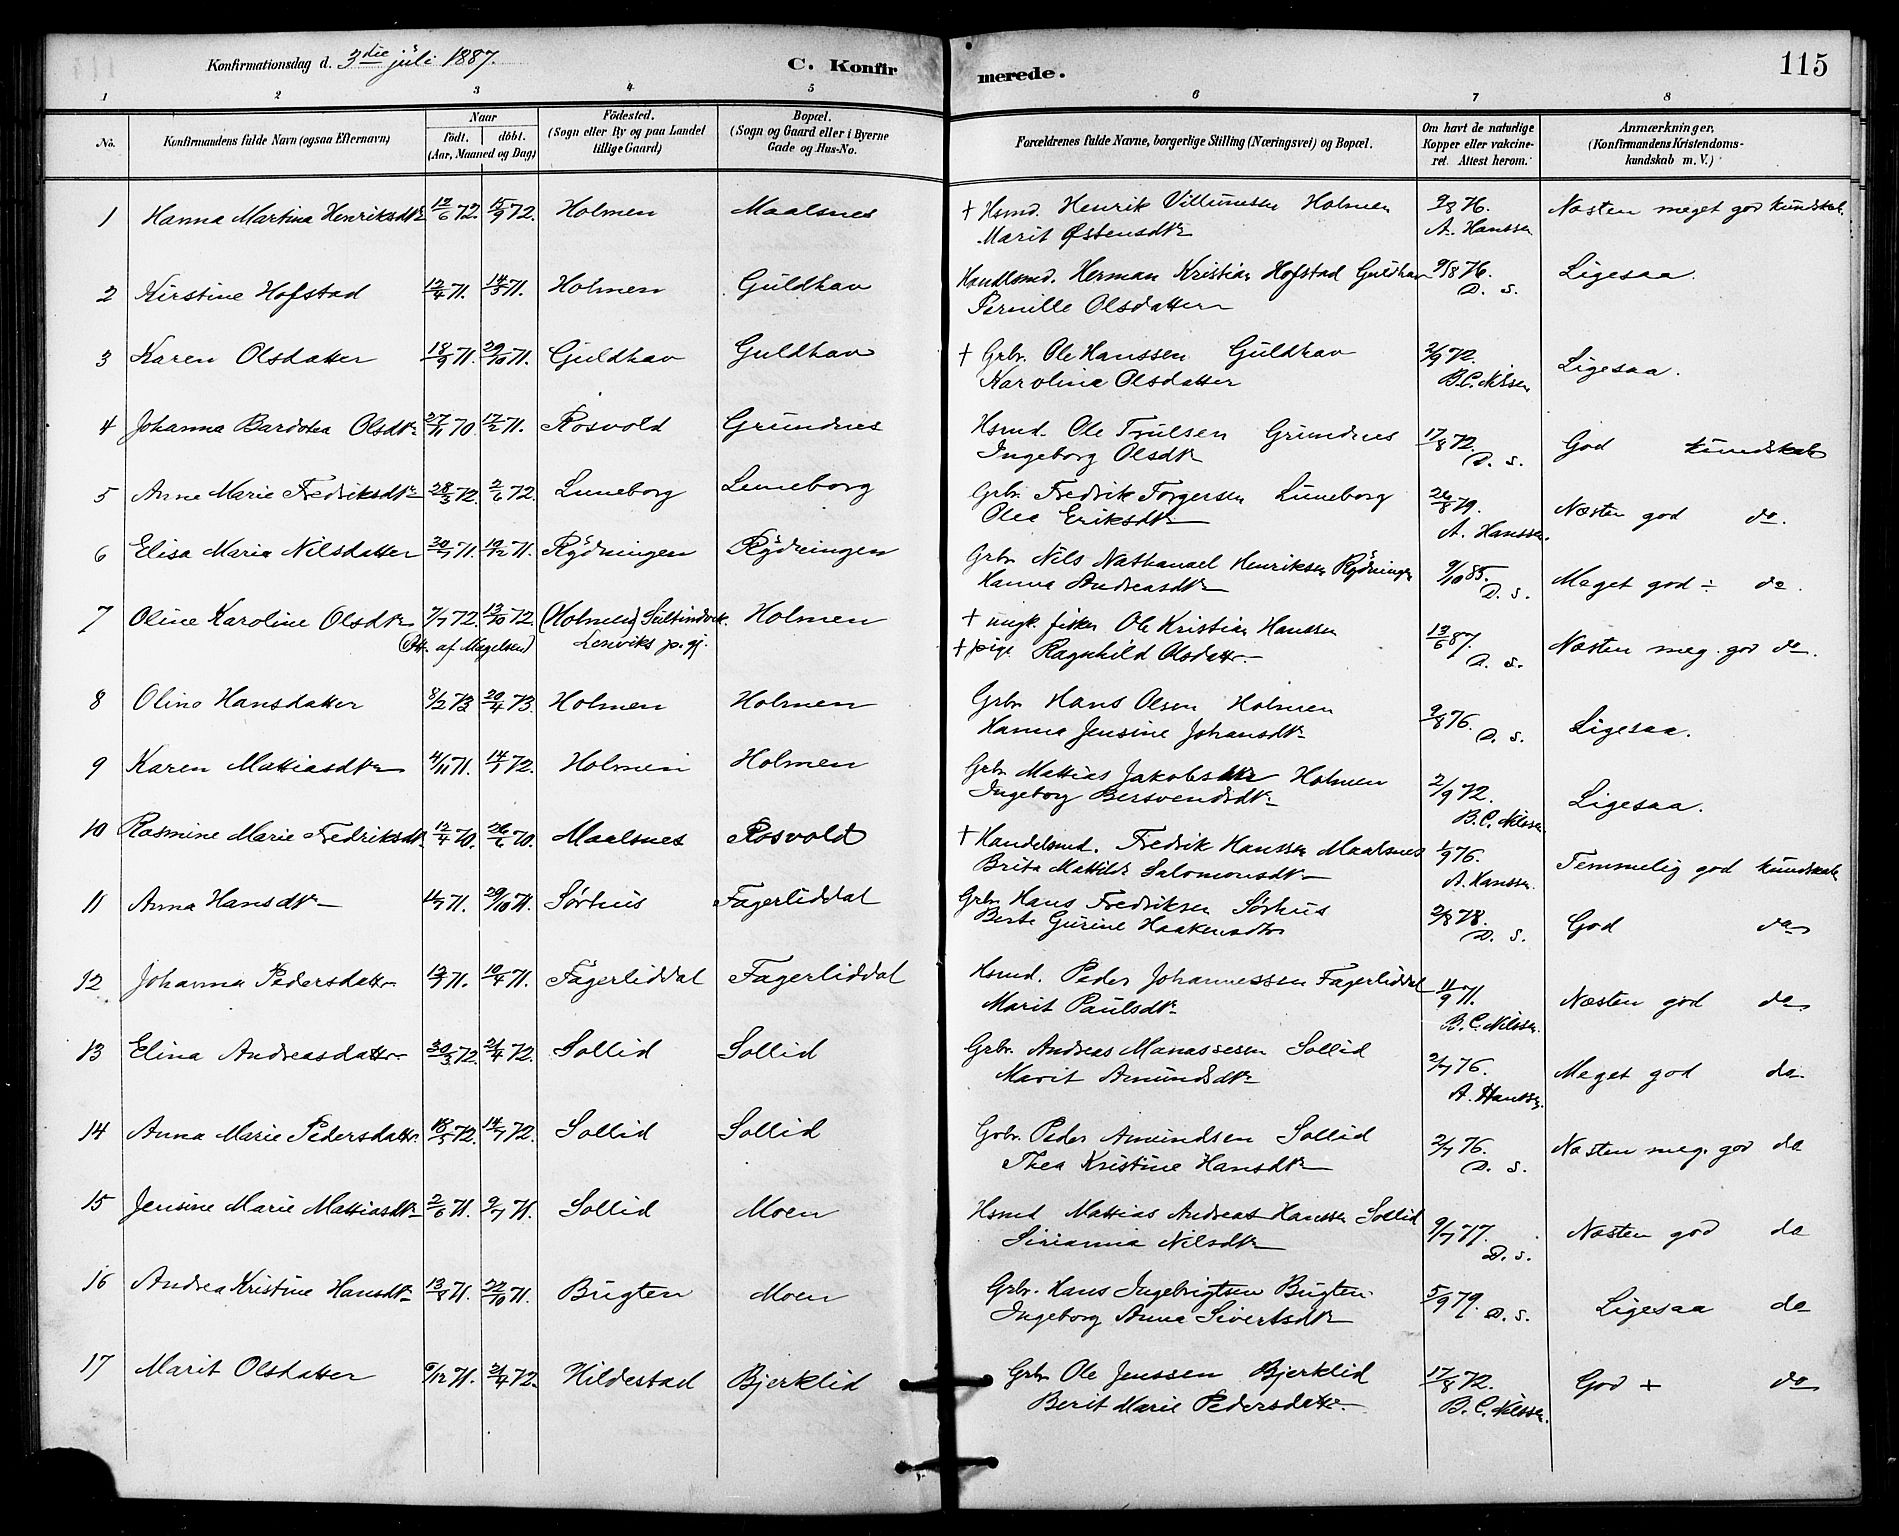 Konfirmationsdag d. 3die juli 1887.
C. Konfir
merede.
115
1 2 3 4 5 6 7 8
No.
Konfirmandens fulde Navn (ogsaa Efternavn)
Naar
født. døbt.
(Aar, Maaned og Dag)
Födested.
(Sogn eller By og paa Landet
tillige Gaard)
Bopæl.
(Sogn og Gaard eller i Byerne
Gade og Hus-No.
Forældrenes fulde Navne, borgerlige Stilling (Næringsvei) og Bopæl.
Om havt de naturlige
Kopper eller vakcine-
ret. Attest herom.
Anmærkninger.
(Konfirmandens Kristendoms-
kundskab m. V.)
1 Hanna Martina Henriksdtr 12/6 72. 15/9 72. Holmen Maalsnes + Hsmd. Henrik Villumsen Holmen 9/8 76. Næsten meget god kundskab.
Marit Østensdtr A. Hanssen
2 Kirstine Hofstad 12/4 71. 14/5 71. Holmen Guldhav Handlsmd. Herman Kristian Hofstad Guldhav 9/8 76. Ligesaa.
Pernille Olsdatter D. s.
3 Karen Olsdatter 18/9 71. 29/10 71. Guldhav Guldhav + Grbr. Ole Hanssen Guldhav 2/9 72. Ligesaa.
Karolina Olsdatter B. C. Nilssen
4 Johanna Bardotea Olsdtr 27/11 70 12/2 71. Rosvold Grundnes Hsmd. Ole Trulsen Grundnes 17/8 72. God kundskab
Ingeborg Olsdtr D. s.
5 Anne Marie Fredriksdtr 28/3 72. 2/6 72. Luneborg Luneborg Grbr. Fredrik Torgersen Luneborg 26/8 79. Næsten god do.
Olea Eriksdtr A. Hanssen.
6 Elisa Maria Nilsdatter 30/7 71. 10/12 71. Rydningen Rydningen Grbr. Nils Nathanael Henriksen Rydningen 9/10 85. Meget god ÷ do.
Hanna Andreasdtr D. s.
7 Oline Karoline Olsdtr 7/7 72. 13/10 72. (Holmen) Sultindvik. Holmen + ungk. fisker Ole Kristian Hanssen 13/6 87. Næsten meg. god do.
(Att. af Magelsen) Lenviks p. gj. + pige Ragnhild Olsdatter D. s.
8 Oline Hansdatter 8/2 73 20/4 73. Holmen Holmen Grbr. Hans Olsen Holmen 9/8 76. Ligesaa.
Hanna Jensine Johansdtr D. s.
9 Karen Mattiasdtr 4/11 71. 14/1 72. Holmen Holmen Grbr. Mattias Jakobsen Holmen 2/9 72. Ligesaa.
Ingeborg Bersvendsdtr B. C. Nilssen
10 Rasmine Marie Fredriksdtr. 12/4 70. 26/6 70. Maalsnes Rosvold + Handelsmd. Fredrik Hanssen Maalsnes 1/9 76. Temmelig god kundskab
Brita Matilde Salomonsdtr A. Hanssen.
11 Anna Hansdtr 4/7 71. 29/10 71. Sørhus Fagerliddal Grbr. Hans Fredriksen Sørhus 2/8 78. God do
Berte Gurine Haakensdtr D. s.
12 Johanna Pedersdatter 12/3 71. 10/4 71. Fagerliddal Fagerliddal Hsmd. Peder Johannessen Fagerliddal 11/9 71. Næsten god do
Marit Paulsdtr B. C. Nilssen.
13 Elina Andreasdatter 30/3 72. 21/4 72. Sollid Sollid Grbr. Andreas Manassesen Sollid 2/7 76. Meget god do
Marit Amundsdtr A. Hanssen.
14 Anna Marie Pedersdatter 18/5 72. 14/7 72. Sollid Sollid Grbr. Peder Amundsen Sollid 2/7 76. Næsten meg. god do
Thea Kristine Hansdtr D. s.
15 Jensine Marie Mattiasdtr 2/6 71. 9/7 71. Sollid Moen Hsmd Mattias Andreas Hanssen Sollid 9/7 77. Næsten god do
Sirianna Nilsdtr D. s.
16 Andrea Kristine Hansdtr 13/8 71. 22/10 71. Bugten Moen Grbr. Hans Ingebrigtsen Bugten 5/9 79. Ligesaa do
Ingeborg Anna Sivertsdtr D. s.
17 Marit Olsdatter 6/12 71. 21/4 72. Hildestad Bjerklid Grbr Ole Jenssen Bjerklid 17/8 72. God + do
Berit Marie Pedersdatter B. C. Nilssen.